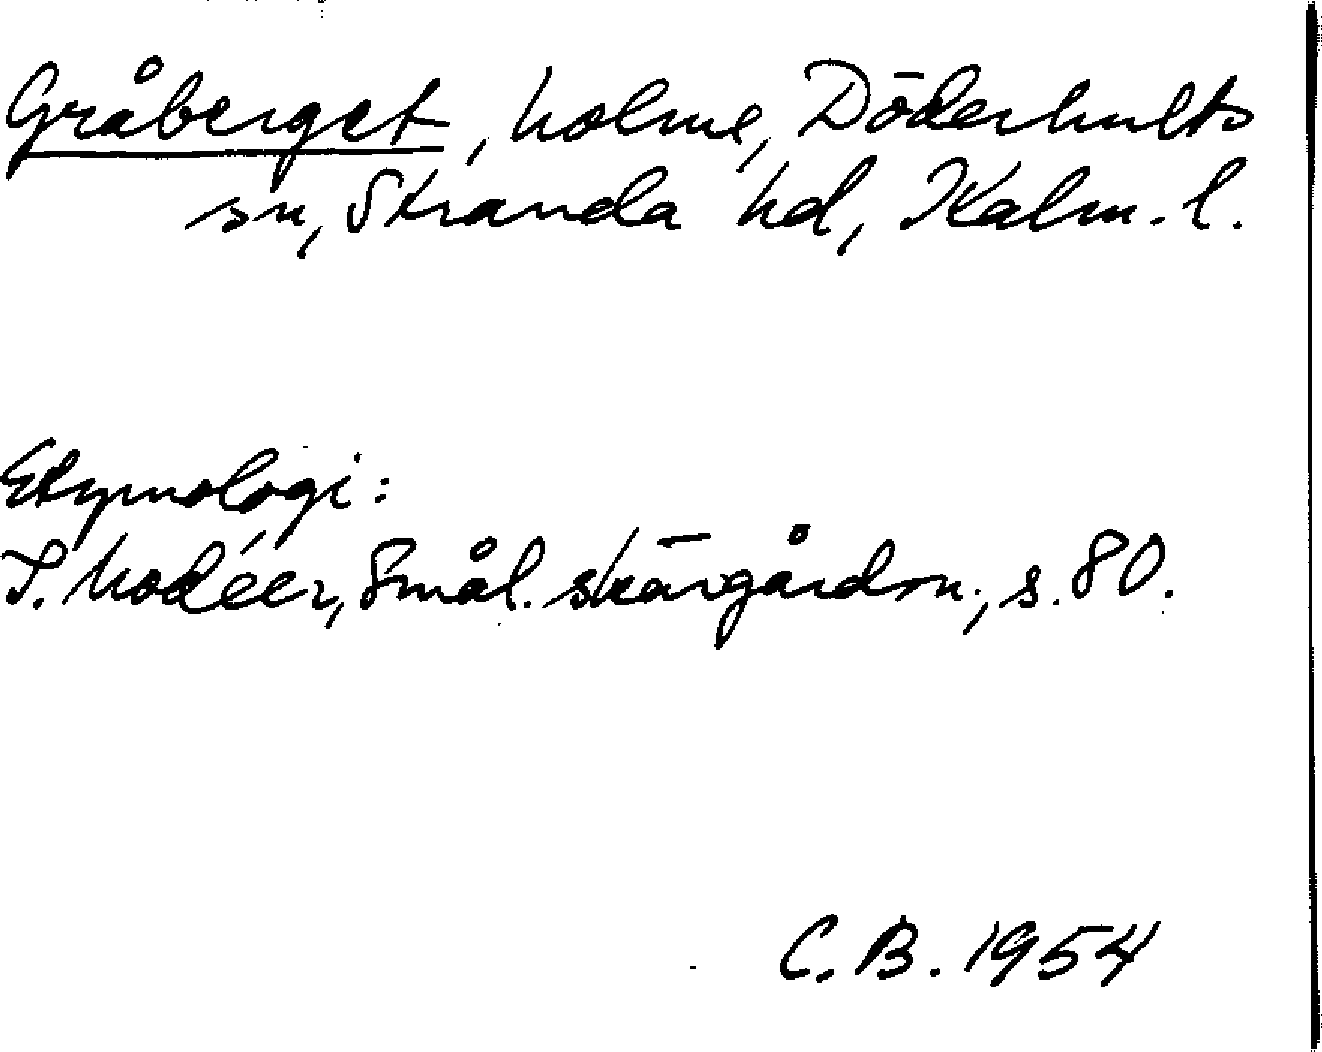 Gråberget, holme, Döderhults
sn, Stranda hd, Kalm. l.
Etymologi:
I. Modéer, Smål. skärgårdsn., s. 80.
C. B. 1954